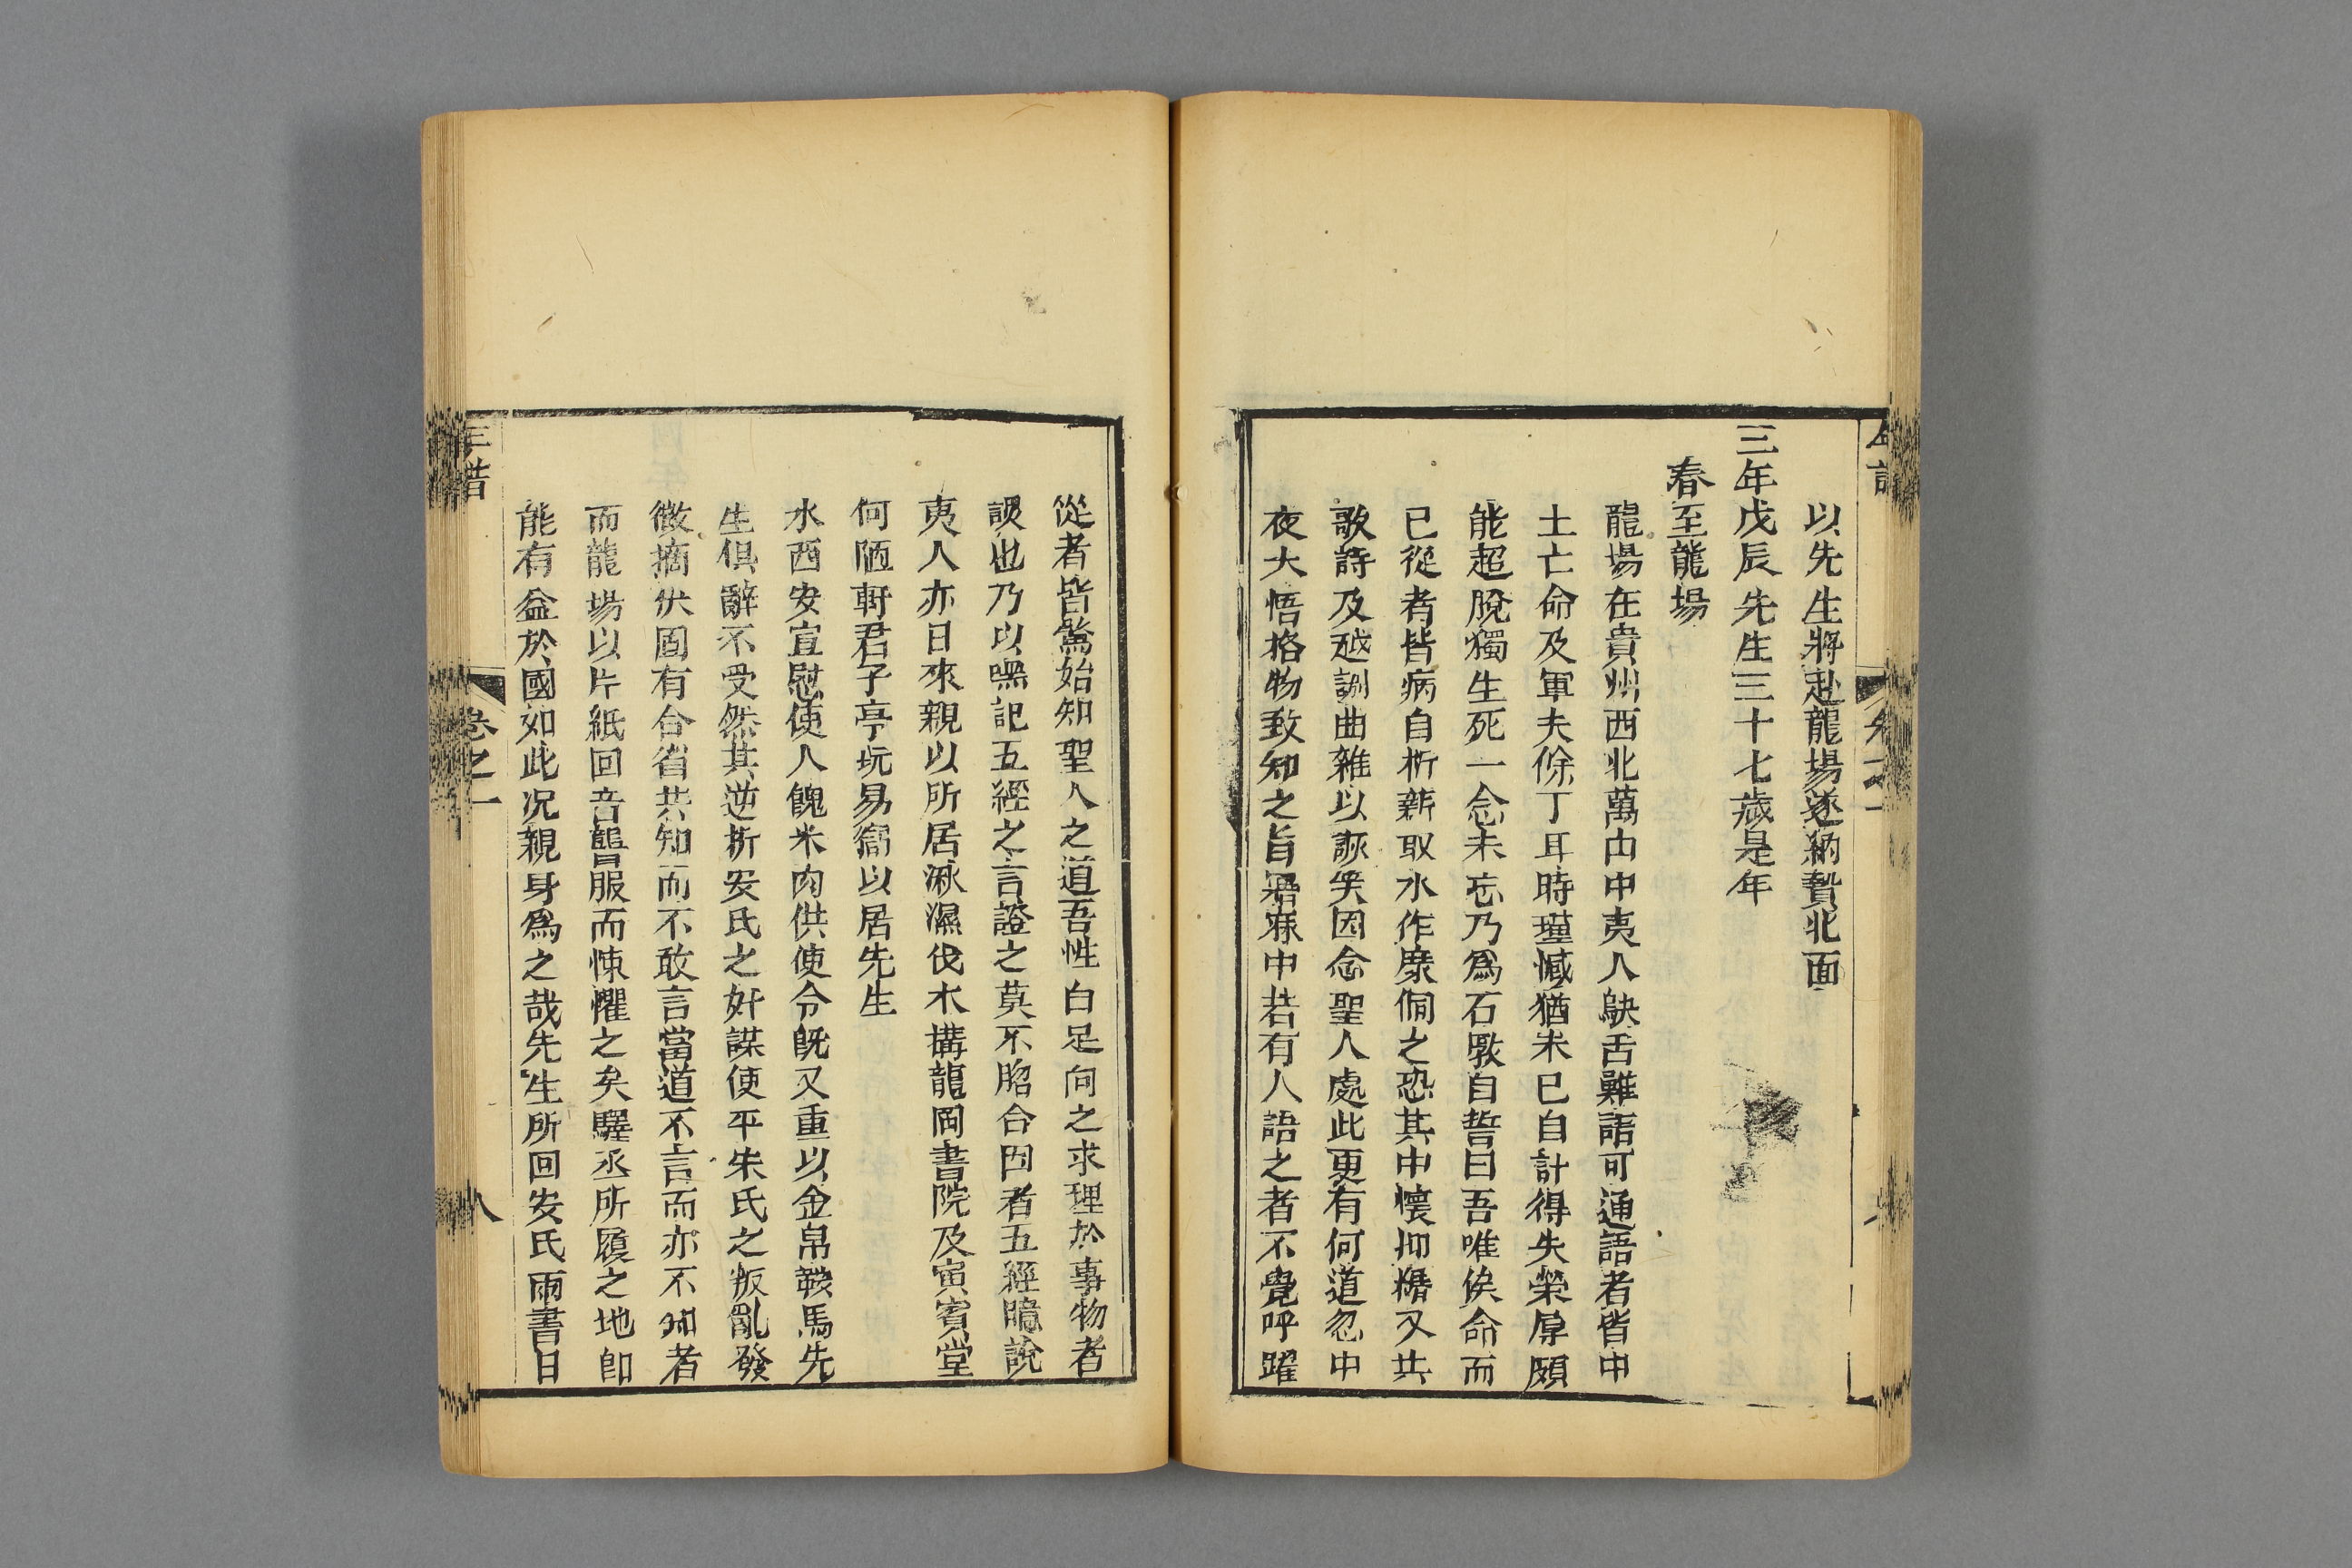 以先生將赴龍場遂納贄北面
三年戊辰先生三十七歲是年
春至龍場
龍場在貴州西北萬山中夷人鴃舌難語可通語者皆中
土亡命及軍夫餘丁耳時瑾憾猶未已自計得失榮辱頗
能超脫獨生死一念未忘乃爲石墩自誓曰吾唯俟命而
已從者皆病自析薪取水作糜伺之恐其中懷抑鬱又共
歌詩及越調曲雜以詼笑因念聖人處此更有何道忽中
夜大悟格物致知之旨寤寐中若有人語之者不覺呼躍
從者皆驚始知聖人之道吾性自足向之求理於事物者
誤也乃以嘿記五經之言證之莫不脗合因著五經臆說
夷人亦日來親以所居湫濕伐木搆龍岡書院及寅賓堂
何陋軒君子亭玩易窩以居先生
水西安宣慰使人餽米肉供使令旣又重以金帛鞍馬先
生俱辭不受然其逆折安氏之奸謀使平朱氏之叛亂發
微摘伏固有合省共知而不敢言當道不言而亦不知者
而龍場以片紙回音讋服而悚懼之矣驛丞所履之地卽
能有益於國如此况親身爲之哉先生所回安氏兩書日
年譜
卷之一
八